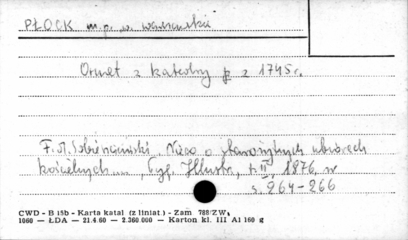 PŁOCK m.p. w. warszawskie
Ornat z katedry pł z 1745 r.
F.M. Sobieszczański, Nieco o starożytnych ubiorach
kościelnych ... , Tyg. Illustr., t. II, 1876, nr
s. 264-266
CWD - B 15b - Karta katal. (z liniat.) - Zam 788/ZW
1060 — ŁDA — 21.4.60 — 2.360.000 — Karton kl. III A1 160 g